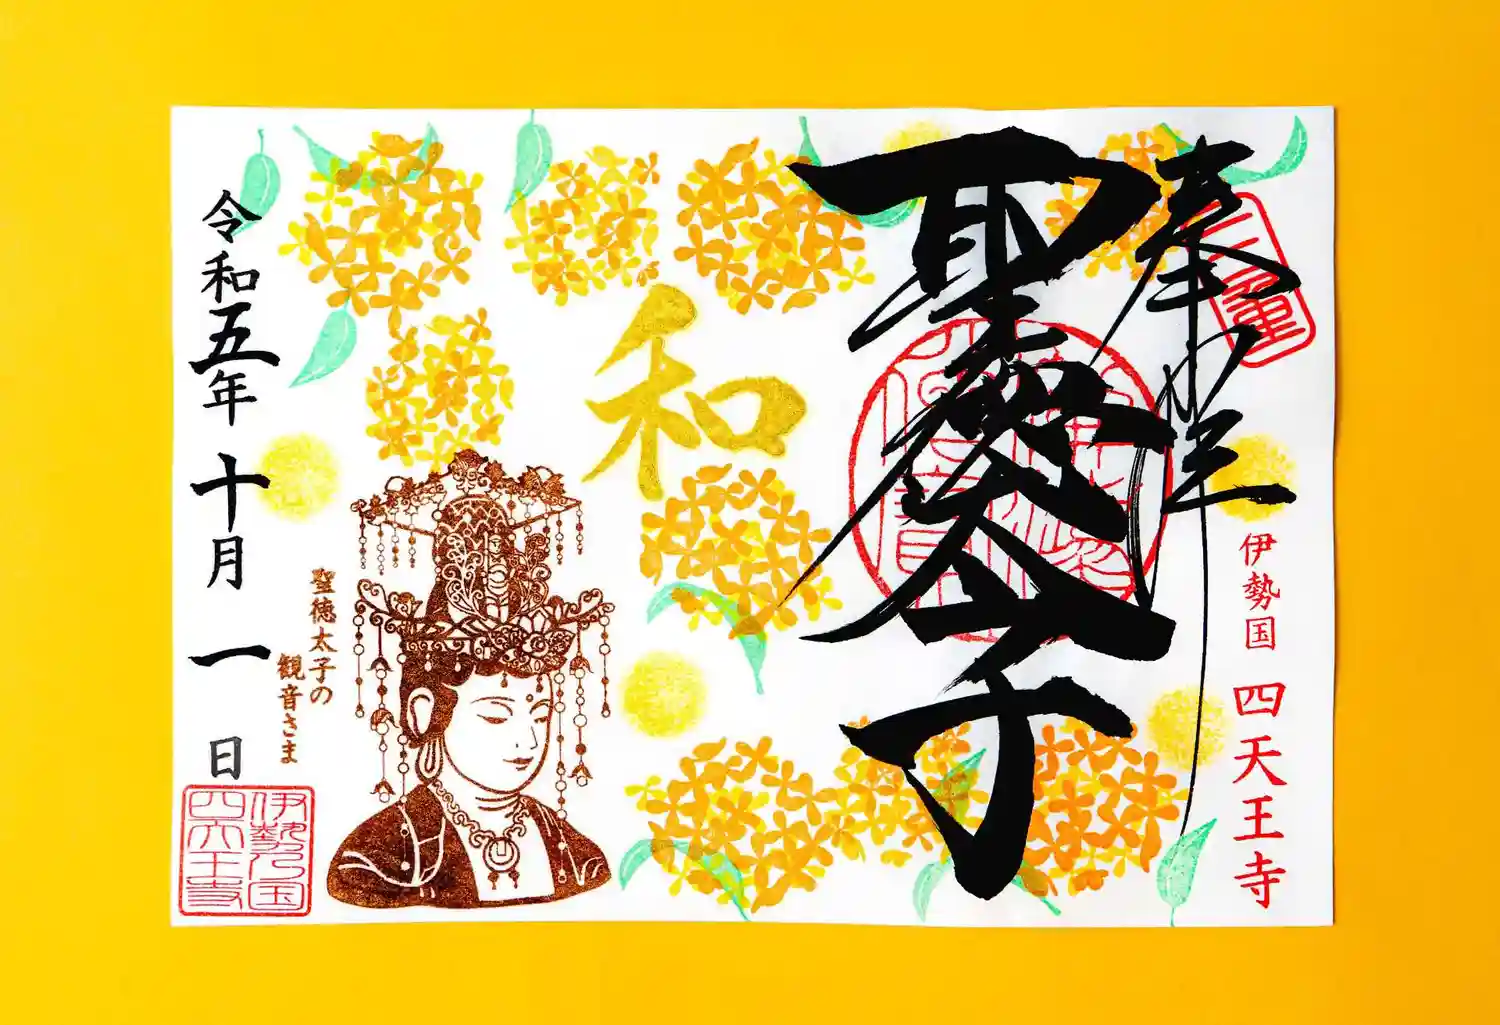 奉拝
聖徳太子
伊勢国 四天王寺
和
聖徳太子の
観音さま
令和五年 十月 一 日
伊勢乃国
四天王寺